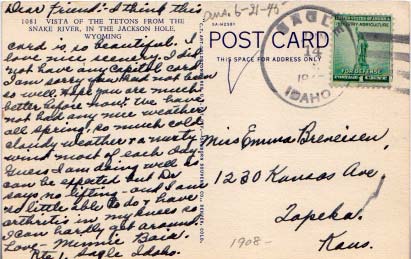 Dear Friend:- I think this
1081 VISTA OF THE TETONS FROM THE
SNAKE RIVER, IN THE JACKSON HOLE,
WYOMING
card is, so beautiful. I
love nice scenery. I did
not have any Capitol card
Am sorry you had not been
so well. Hope you are much
better before now. We have
not had any nice weather
all Spring, so much cold
cloudy weather & a nasty
wind most of each day.
Guess I am doing well as
can be expected but Dr
says no lifting - and I am
so little able to do & have
arthritis in my knees so
I can hardly get around.
Love - Minnie
Rte 1, Sagle Idaho.
Ans. 6-21-45
5A-H2581
POST CARD
THIS SPACE FOR ADDRESS ONLY
SAGLE
14
IDAHO
INDUSTRY AGRICULTURE
FOR DEFENSE
Miss Emma Breneisen,
1230 Kansas Ave,
Topeka.
Kans.
1908-